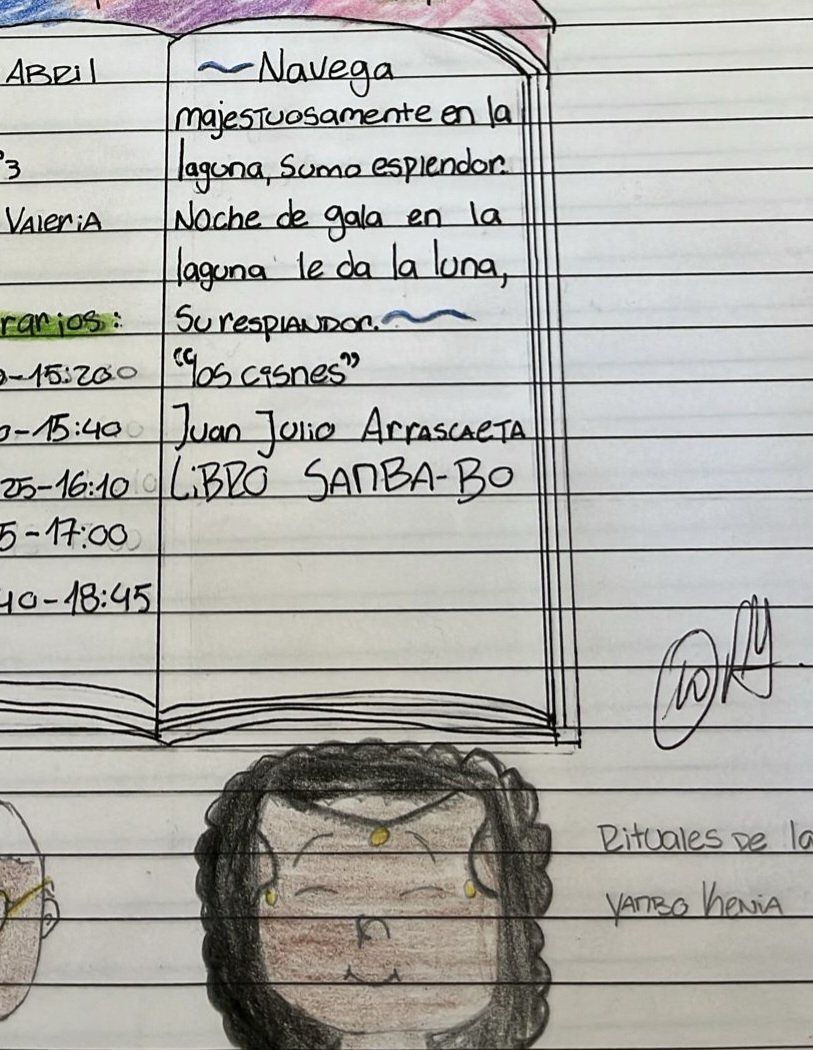 ABRIL
°3
VALERIA
rarios:
0-15:20
0-15:40
25-16:10
5-17:00
40-18:45
~Navega
majestuosamente en la
laguna, Sumo esplendor.
Noche de gala en la
laguna le da la luna,
Su resplandor.~
"los cisnes"
Juan Julio Arrascaeta
LIBRO SAMBA-BO
10
Rituales de la
YAMBO KENIA